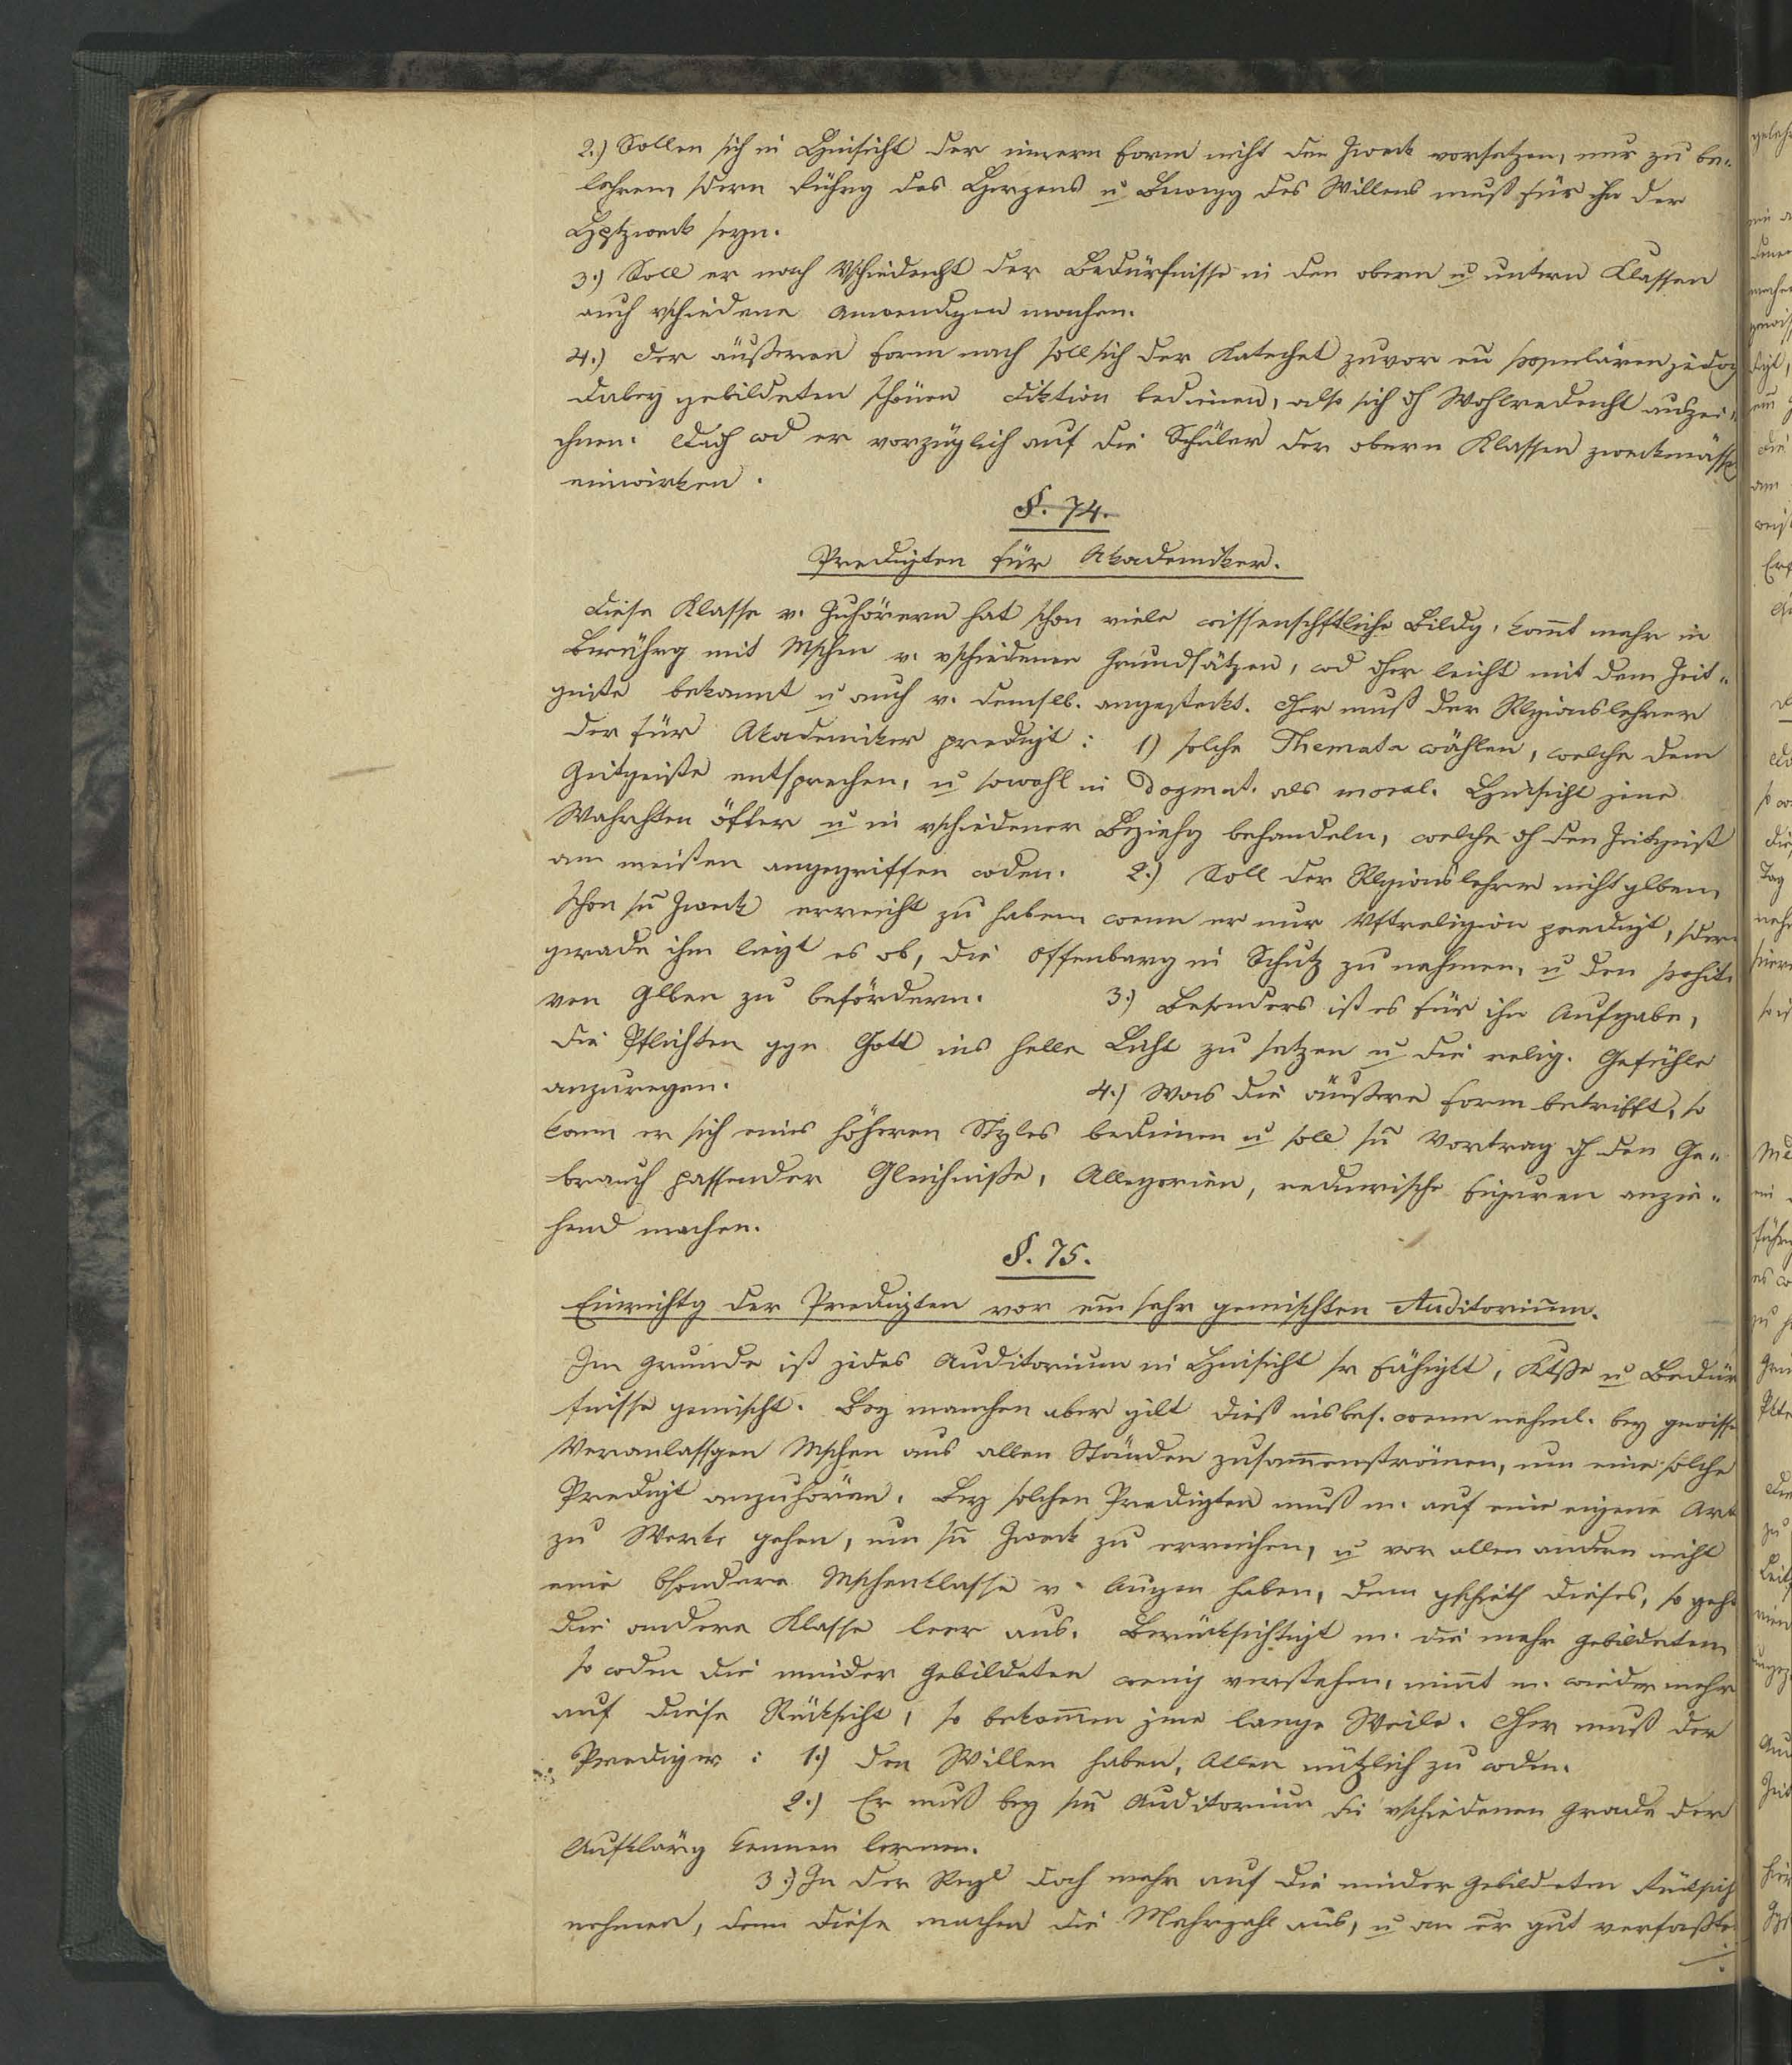 2.) Sollen sich in Hinsicht der innern Form nicht den Zweck vorsetzen, nur zu be-
lehren, sdern Rührg des Herzens u Bewegg des Willens muß für ihn der
Hptzweck seyn.
3.) Soll er nach Vschiedenht der Bedürfnisse in den obern u untern Klassen
auch vschiedene Anwendgen machen.
4.) Der äußeren Form nach soll sich der Katechet zuvor populären jedoch
dabey gebildeten schönen Diktion bedienen, also sich dh Wohlredenht auszei-
chnen. Ddch wd er vorzüglich auf die Schüler der obern Klassen zweckmässg
einwirken.
§. 74.
Predigten für Akademiker.
Diese Klasse v. Zuhörern hat schon viele wissenschftliche Bildg, komt mehr in
Berührg mit Mschen v. vschiedenen Grundsätzen, wd dher leicht mit dem Zeit-
geiste bekannt u auch v. demslb. angesteckt. Dher muß der Rlgionslehrer
der für Akademiker predigt: 1) solche Themata wählen, welche dem
Zeitgeiste entsprechen, u sowohl in dogmat. als moral. Hinsicht jene
Wahrhten öfter u in vschiedener Beziehg behandeln, welche dh den Zeitgeist
am meisten angegriffen wden. 2.) Soll der Rlgionslehrer nicht glben,
schon sn Zweck erreicht zu haben wenn er nur Vftreligion predigt, sdern
gerade ihm liegt es ob, die Offenbarg in Schutz zu nehmen, u den positi-
ven Glben zu befördern. 3.) Besonders ist es für ihn Aufgabe,
die Pflichten ggn Gott ins helle Licht zu setzen u die relig. Gefühle
anzuregen. 4.) Was die äußere Form betrifft, so
kann er sich eines höheren Styles bedienen u soll sn Vortrag dh den Ge-
brauch passender Gleichniße, Allegorien, rednerische Figuren anzie-
hend machen.
§. 75.
Einrichtg der Predigten vor em sehr gemischten Auditorium.
Im Grunde ist jedes Auditorium in Hinsicht sr Fähigkt, Ktße u Bedür
fnisse gemischt. Bey manchen aber gilt dieß insbes. wenn nehml. bey gewisse
Veranlassgen Mschen aus allen Ständen zusammenströmen, um eine solche
Predigt anzuhören. Bey solchen Predigten muß m. auf eine eigene Art
zu Werke gehen, um sn Zweck zu erreichen, u vor allem andern nicht
eine bsondere Mschenklasse v. Augen haben, denn gschieht dieses, so geht
die andere Klasse leer aus. Berücksichtigt m. die mehr gebildeten
so wden die minder Gebildeten wenig verstehen, nimt m. wieder mehr
auf diese Rücksicht, so bekommen jene lange Weile. Dher muß der
Prediger: 1.) den Willen haben, Allen nützlich zu wden.
2.) Er muß bey sm Auditorium die vschiedenen Grade der
Aufklärg kennen lernen.
3.) In der Regl doch mehr auf die minder Gebildeten Rücksich
nehmen, denn diese machen die Mehrzahl aus, u an er gut verfaßte